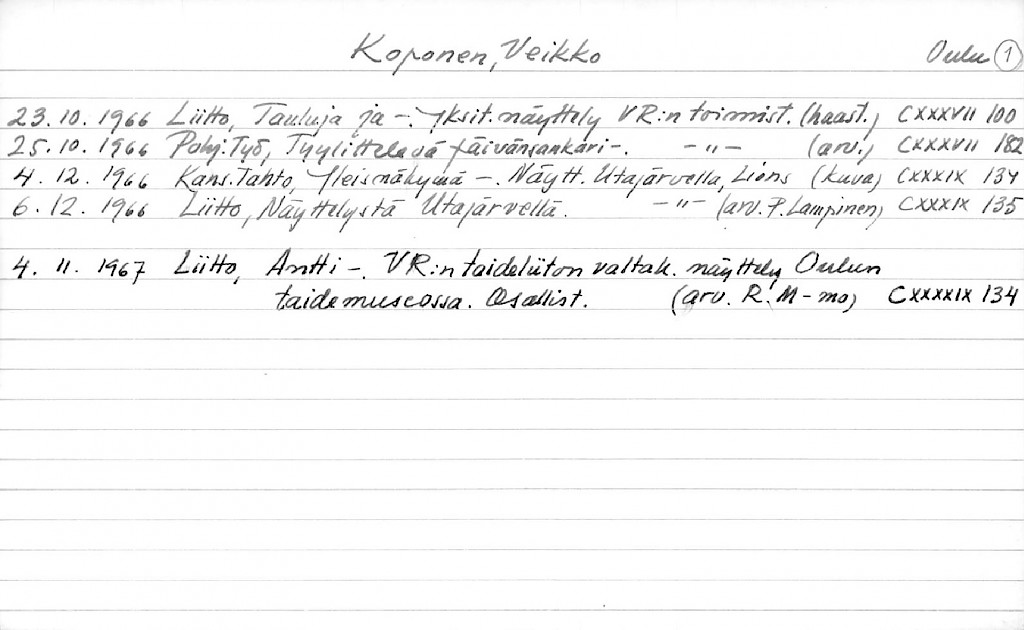 Koponen, Veikko Oulu 1
23.10.1966 Liitto, Tauluja ja -. Yksit.näyttely VR:n toimist. (haast.) CXXXVII 100
25.10.1966 Pohj.Työ, Tyylittelevä päivänsankari -. -"- (arv.) CXXXVII 182
4.12.1966 Kans.Tahto, Yleisnäkymä -. Näytt. Utajärvella, Lions (kuva) CXXXIX 134
6.12.1966 Liitto, Näyttelystä Utajärvellä. -"- (arv. P. Lampinen) CXXXIX 135
4.11.1967 Liitto, Antti -. VR:n taideliiton valtak. näyttely Oulun
taidemuseossa. Osallist. (arv. R. M-mo) CXXXXIX 134